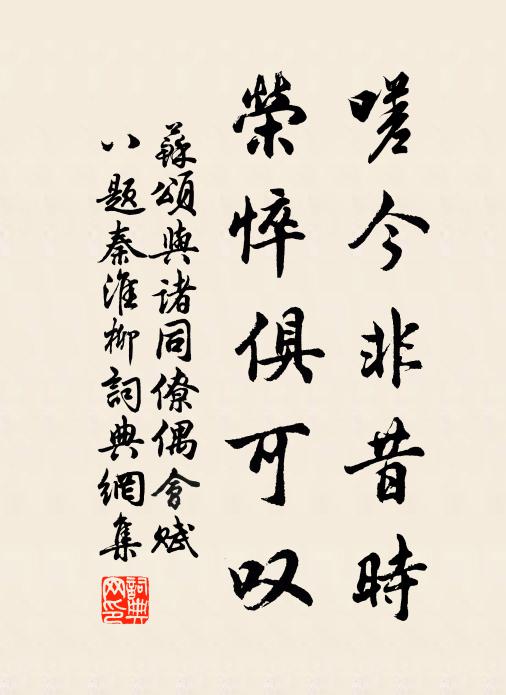 嗟今非昔時
榮悴俱可叹
蘇頌與諸同僚偶會賦
八題秦淮柳詞典網集
詞典網印